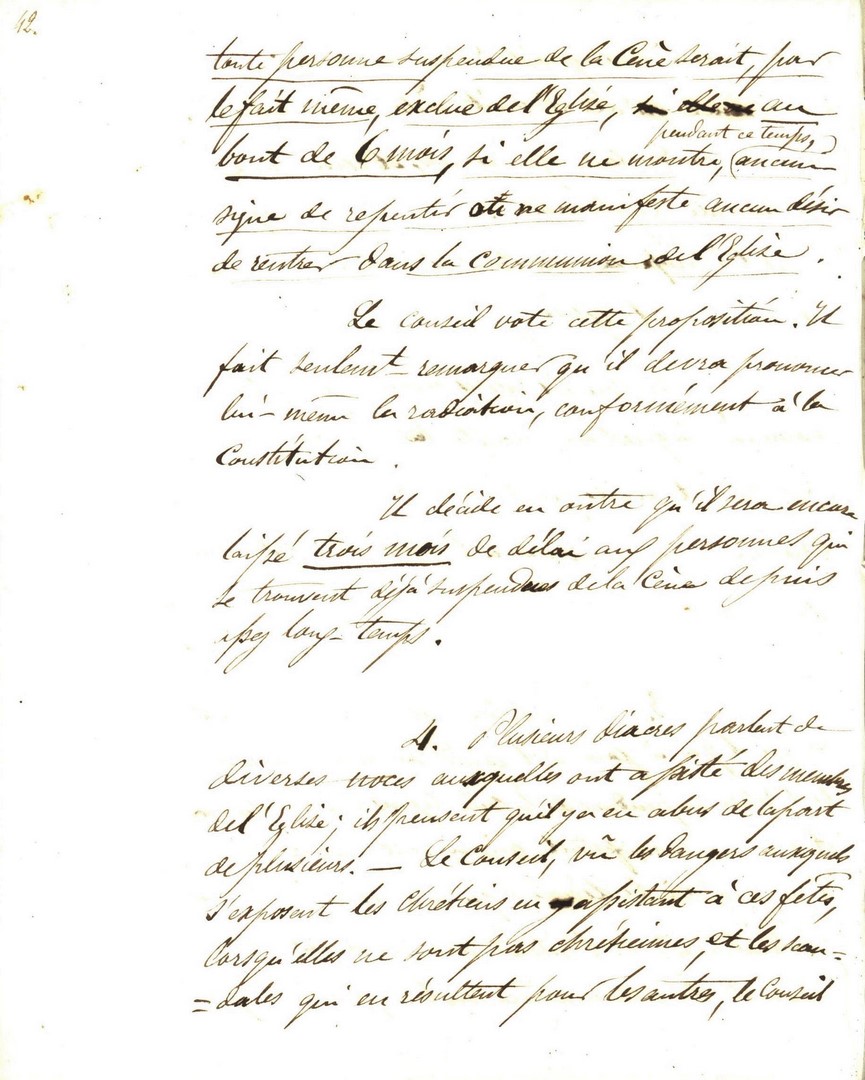 42.
toute personne suspendue de la Cène serait, par
le fait même, exclue de l'Eglise, si elle ne au
pendant ce temps,
bout de 6 mois, si elle ne montre, aucun
signe de repentir et ne manifeste aucun désir
de rentrer dans la communion de l'Eglise.
Le conseil vote cette proposition. Il
fait seulemt remarquer qu'il devra prononcer
lui-même la radiation, conformément à la
Constitution.
Il décide en outre qu'il sera encore
laissé trois mois de délai aux personnes qui
se trouvent déjà suspendues de la Cène depuis
assez long-temps.
4. Plusieurs diacres parlent de
diverses noces auxquelles ont assisté des membres
de l'Eglise; ils pensent qu'il y a eu abus de la part
de plusieurs. — Le Conseil, vu les dangers auxquels
s'exposent les chrétiens en assistant à ces fêtes,
lorsqu'elles ne sont pas chrétiennes, et les scan=
=dales qui en résultent pour les autres, le Conseil